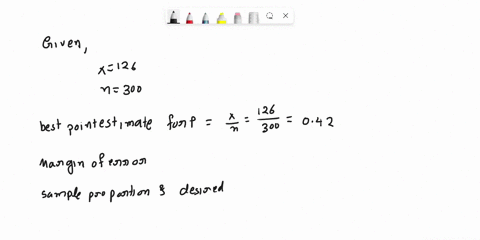 Given,
x=126
n=300
best point estimate for P = x/n = 126/300 = 0.42
Margin of error
sample proportion & desired